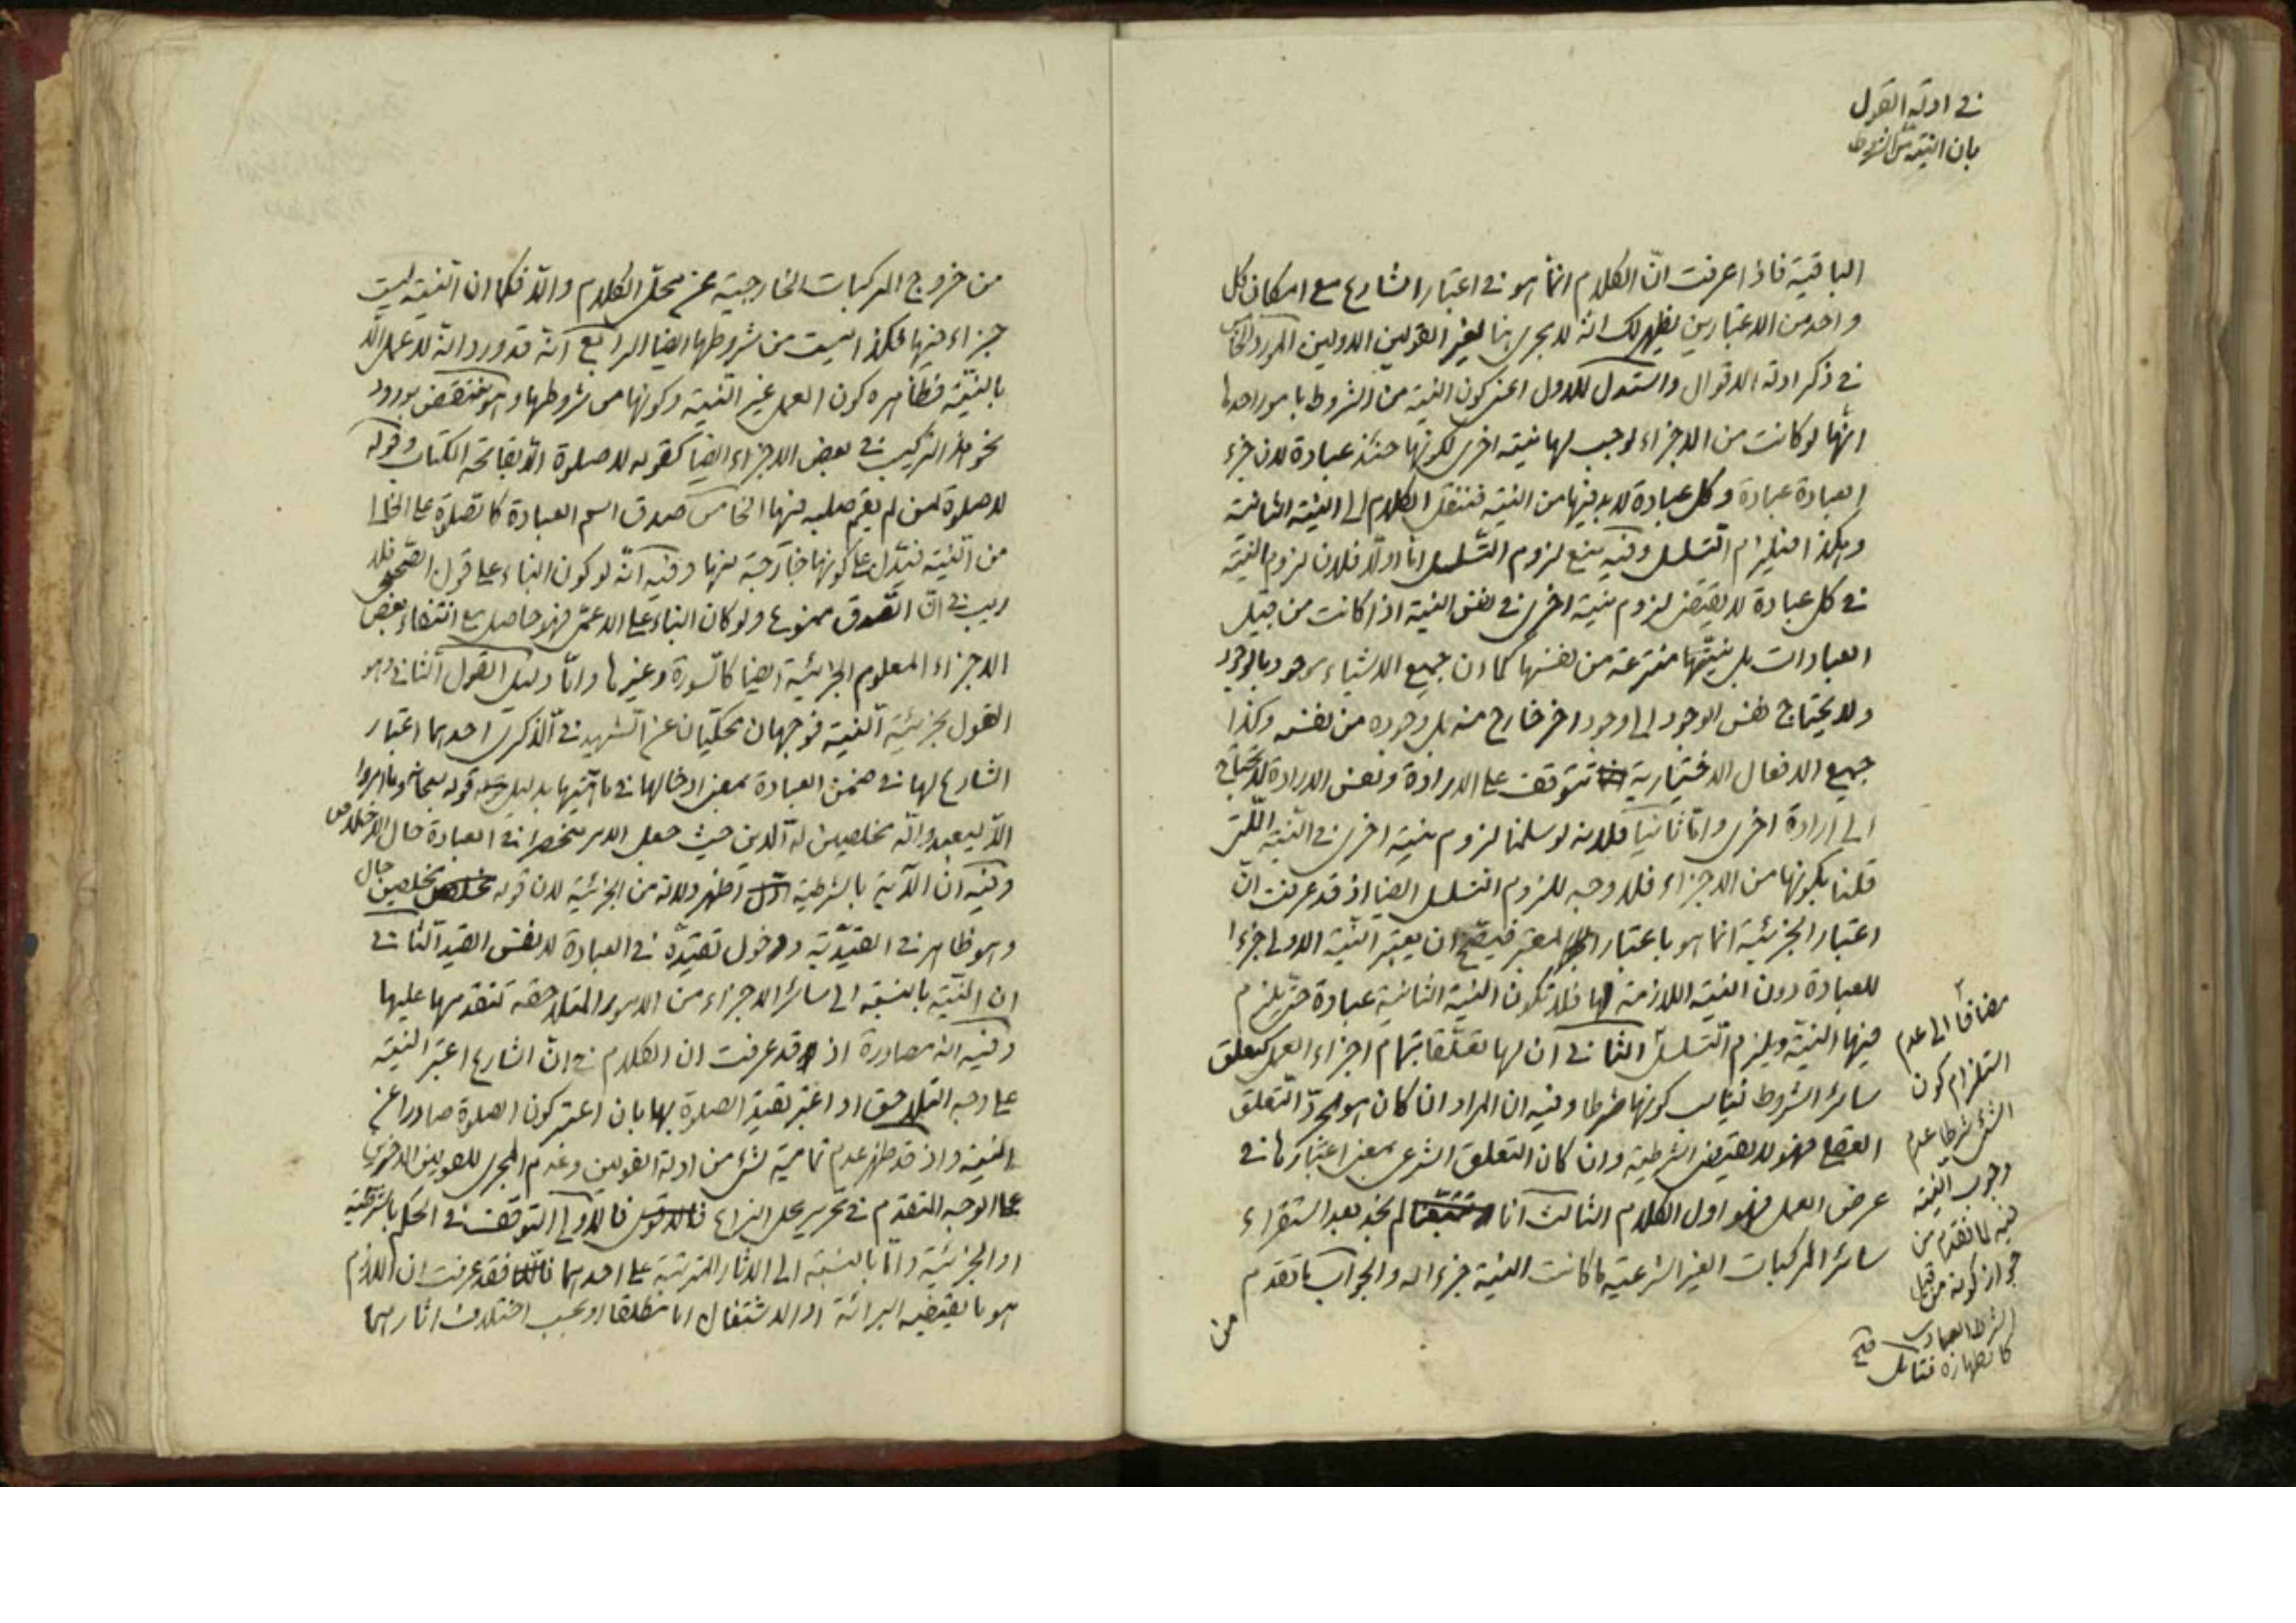 في ادلة القول
بان النية من الشروط
الباقية فاذا عرفت انّ الكلام انّما هو في اعتبار الشارع مع امكان كل
واحد من الاعتبارين يظهر لك انه لا يجرى هنا لغير القولين الاولين المورد الخامس
في ذكر ادلة الاقوال واستدل للاول اعني كون النية من الشروط بامور احدها
انّها لو كانت من الاجزاء لوجب لها نية اخرى لكونها حنئذ عبادة لان جزء
العبادة عبادة وكل عبادة لا بد فيها من النية فننقل الكلام الى النية الثانية
وهكذا فيلزم التسلسل وفيه منع لزوم التسلسل امّا اولا فلان لزوم النية
في كل عبادة لا يقتضى لزوم نية اخرى في نفس النية اذا كانت من قبيل
العبادات بل نيتها منتزعة من نفسها كما ان جميع الاشياء موجود بالوجود
ولا يحتاج نفس الوجود الى وجود اخر خارج منه بل وجوده من نفسه وكذا
جميع الافعال الاختيارية تتوقف على الارادة ونفس الارادة لا تحتاج
الى ارادة اخرى وامّا ثانيا فلانه لو سلمنا لزوم نية اخرى في النية اللتى
قلنا بكونها من الاجزاء فلا وجه للزوم التسلسل ايضا اذ قد عرفت انّ
اعتبار الجزئية انما هو باعتبار المعتبر فيصّح ان يعتبر النية الاولى جزءا
للعبادة دون النية اللازمة لها فلا تكون النية الثانية عبادة حتى يلزم
فيها النية ويلزم التسلسل الثاني ان لها تعلّقا بتمام اجزاء العمل كتعلق
سائر الشروط فيناسب كونها شرطا وفيه ان المراد ان كان هو مجردّ التعلق
العقلى فهو لا يقتضى الشرطية وان كان التعلق الشرعى بمعنى اعتبارها في
عرض العمل فهو اول الكلام الثالث انا لم نجد بعد استقراء
سائر المركبات الغير الشرعية ما كانت النية جزءا له والجواب ما تقدم
من
مضافا الى عدم
استلزام كون
الشئ شرطا عدم
وجوب النية
فيه لما تقدم من
جواز كونه من قبيل
الشرط العبادى
كالطهارة فتامل
من خروج المركبات الخارجية عن محل الكلام والا فكما ان النية ليست
جزاء فيها فكذا ليست من شروطها ايضا الرابع انّه قد ورد انه لا عمل الّا
بالنيّة فظاهره كون العمل غير النية وكونها من شروطها وهو منتقض بورود
نحو هذا التركيب في بعض الاجزاء ايضا كقوله لا صلوة الّا بفاتحة الكتاب وقوله
لا صلوة لمن لم يقم صلبه فيها الخامس صدق اسم العبادة كالصلوة على الخالى
من النية فيدّل على كونها خارجة عنها وفيه انّه لو كون البناء على قول الصّحيحى فلا
ريب في انّ الصّدق ممنوع ولو كان البناء على الاعمّ فهو حاصل مع انتفاء بعض
الاجزاء المعلوم الجزئية ايضا كالسورة وغيرها وامّا دليل القول الثاني وهو
القول بجزئية النية فوجهان محكيان عن الشهيد في الذكرى احدهما اعتبار
الشارع لها في ضمن العبادة بمعنى ادخالها في ماهيّتها بدليل قوله سبحانه وما امروا
الّا ليعبدوا الله مخلصين له الدين حيث جعل الامر منحصرا في العبادة حال الاخلاص
وفيه انّ الآية بالشرطية اظهر دلالة من الجزئية لان قوله مخلصين حال
وهو ظاهر في القيديّة ودخول تقيّده في العبادة لا نفس القيد الثاني
ان النيّة بالنسبة الى سائر الاجزاء من الامور المتلاحقة لتقدمها عليها
وفيه انه مصادرة اذ قد عرفت ان الكلام في انّ الشارع اعتبر النية
على وجه التلاحق او اعتبر تقيد الصلوة بها بان اعتبر كون الصلوة صادرا عن
النية واذ قد ظهر عدم تمامية شئ من ادلة القولين وعدم المجرى للاصولين الاخرين
على الوجه المتقدم في تحرير محل النزاع فالاولى التوقف في الحكم بالشرطية
او الجزئية وامّا بالنسبة الى الاثار المترتبة على احدهما فقد عرفت ان اللازم
هو ما يقتضيه البرائة او الاشتغال اما مطلقا او بحسب اختلاف اثارهما